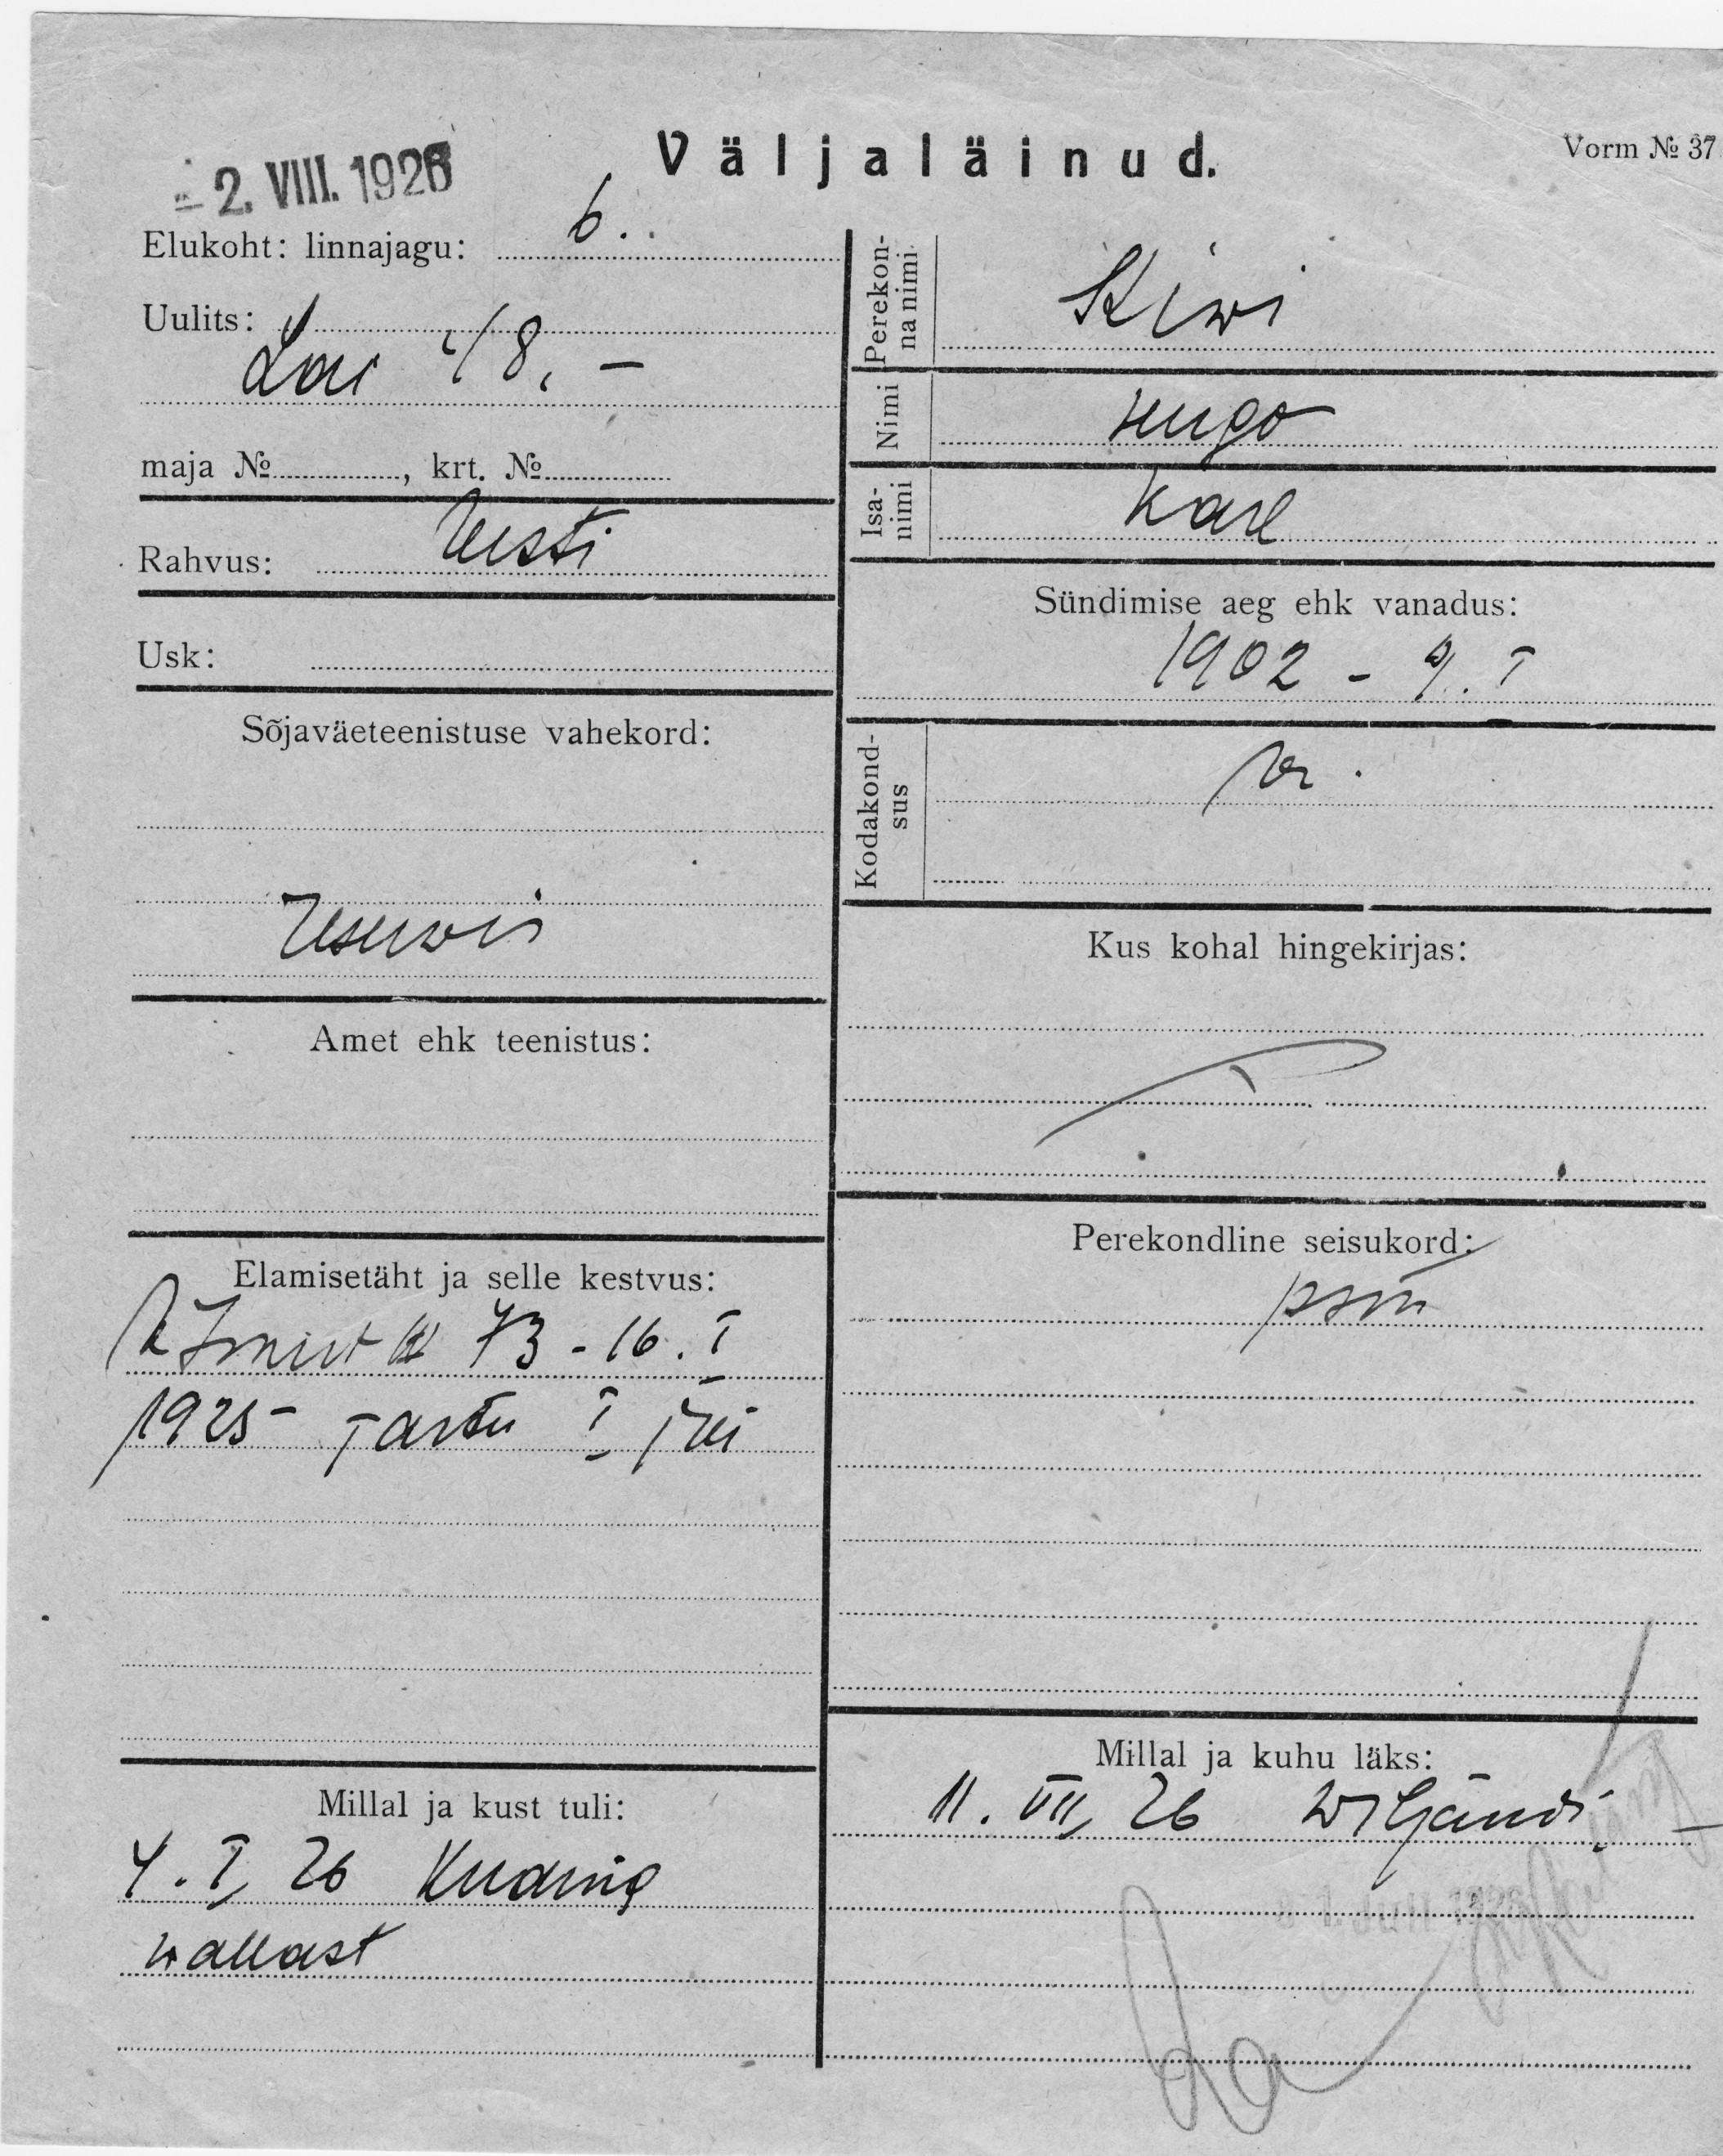 Väljaläinud.
Vorm № 37
2. VIII. 1926
Elukoht: linnajagu: 6.
Uulits:
Lai 48, –
maja № , krt. №
Rahvus: Eesti
Usk:
Sõjaväeteenistuse vahekord:
Amet ehk teenistus:
Elamisetäht ja selle kestvus:
№ 73 - 16. I
1925 Tartu I
Millal ja kust tuli:
4. I, 26
wallast
Perekonna nimi
Kiwi
Nimi
Hugo
Isanimi
Karl
Sündimise aeg ehk vanadus:
1902 - 9. I
Kodakondsus
Kus kohal hingekirjas:
Perekondline seisukord:
Millal ja kuhu läks:
11. VII, 26 Wiljandi,
Juuli 1926